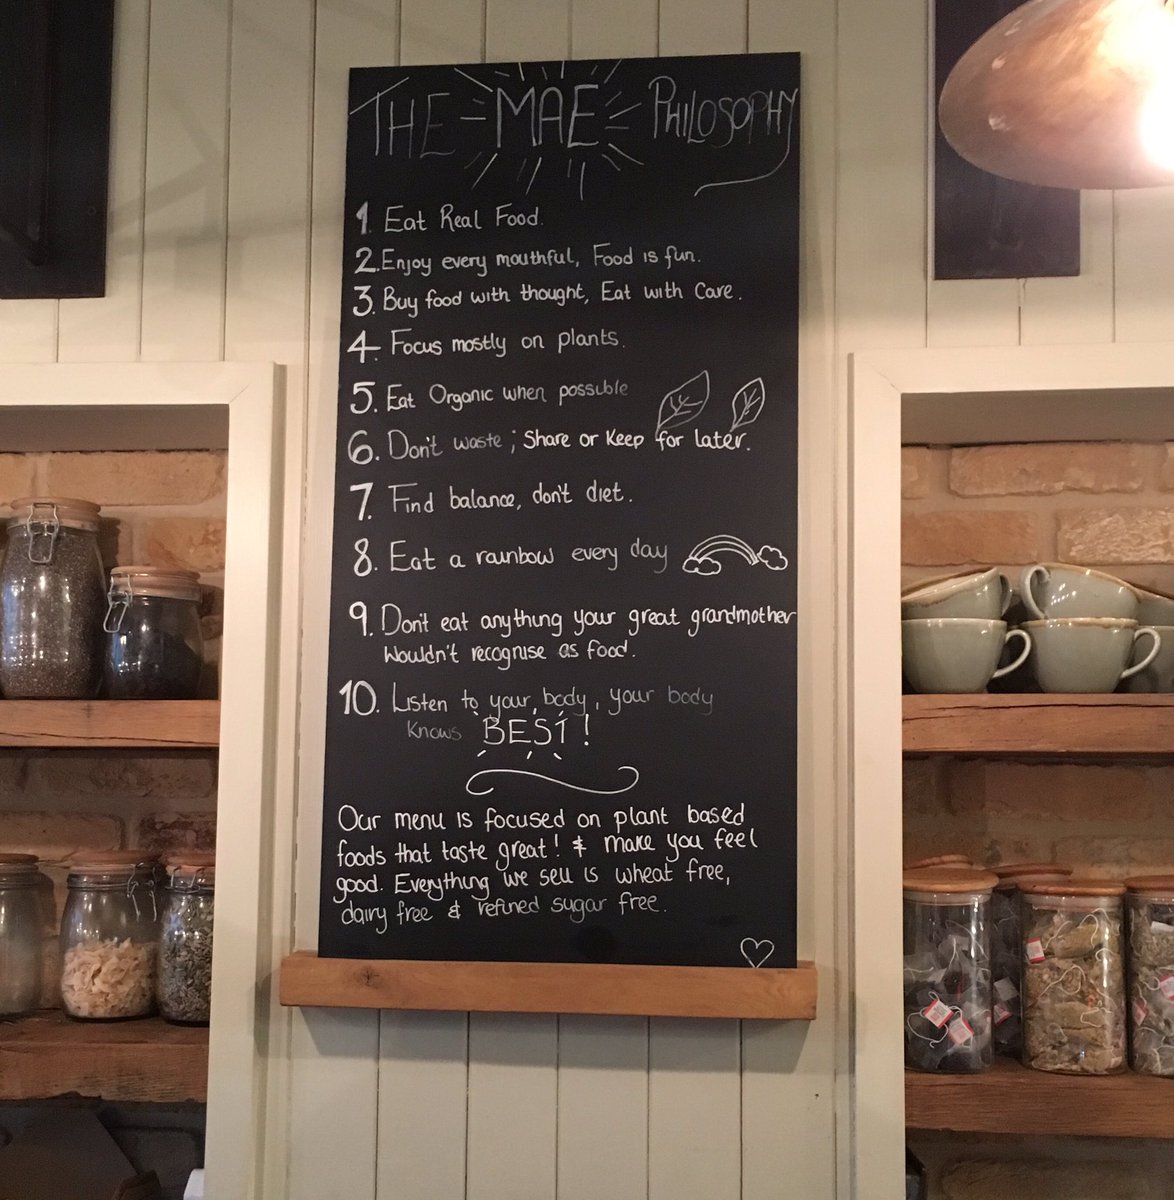 THE MAE PHILOSOPHY
1. Eat Real Food.
2. Enjoy every mouthful, Food is fun.
3. Buy food with thought, Eat with Care.
4. Focus mostly on plants.
5. Eat Organic when possible
6. Don't waste; Share or Keep for later.
7. Find balance, don't diet.
8. Eat a rainbow every day
9. Don't eat anything your great grandmother
wouldn't recognise as food.
10. Listen to your body, your body
knows BEST!
Our menu is focused on plant based
foods that taste great! & make you feel
good. Everything we sell is wheat free,
dairy free & refined sugar free.